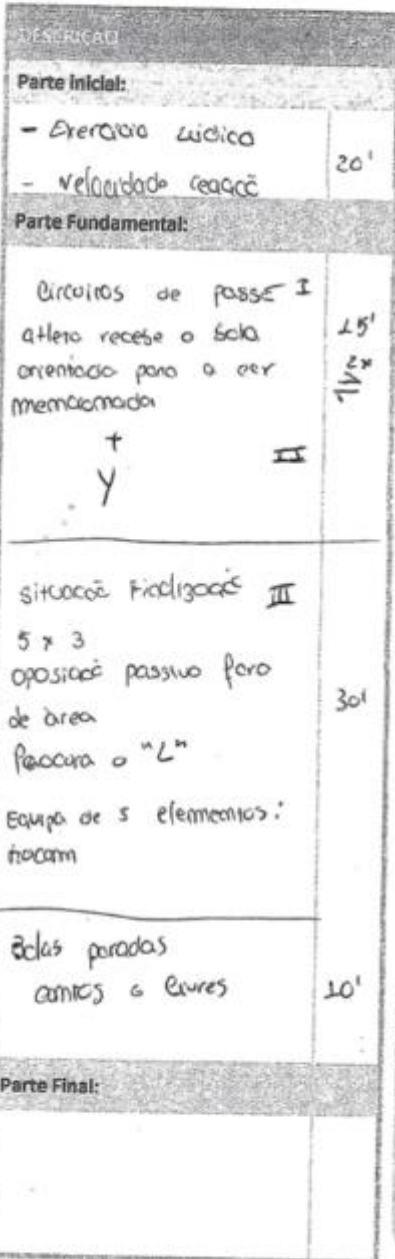 DESCRIÇÃO
Parte inicial:
- Exercicio Lúdico
20'
- Velocidade reacçõ
Parte Fundamental:
Circuitos de passe I
atleta recebe a bola
15'
orientada para a cor
2x
memcionada
+
II
Y
situação Finalização III
5 x 3
oposição passiva fora
30'
de área
Procura o "L"
Equipa de 5 elementos:
trocam
Bolas paradas
cantos e livres
10'
Parte Final: